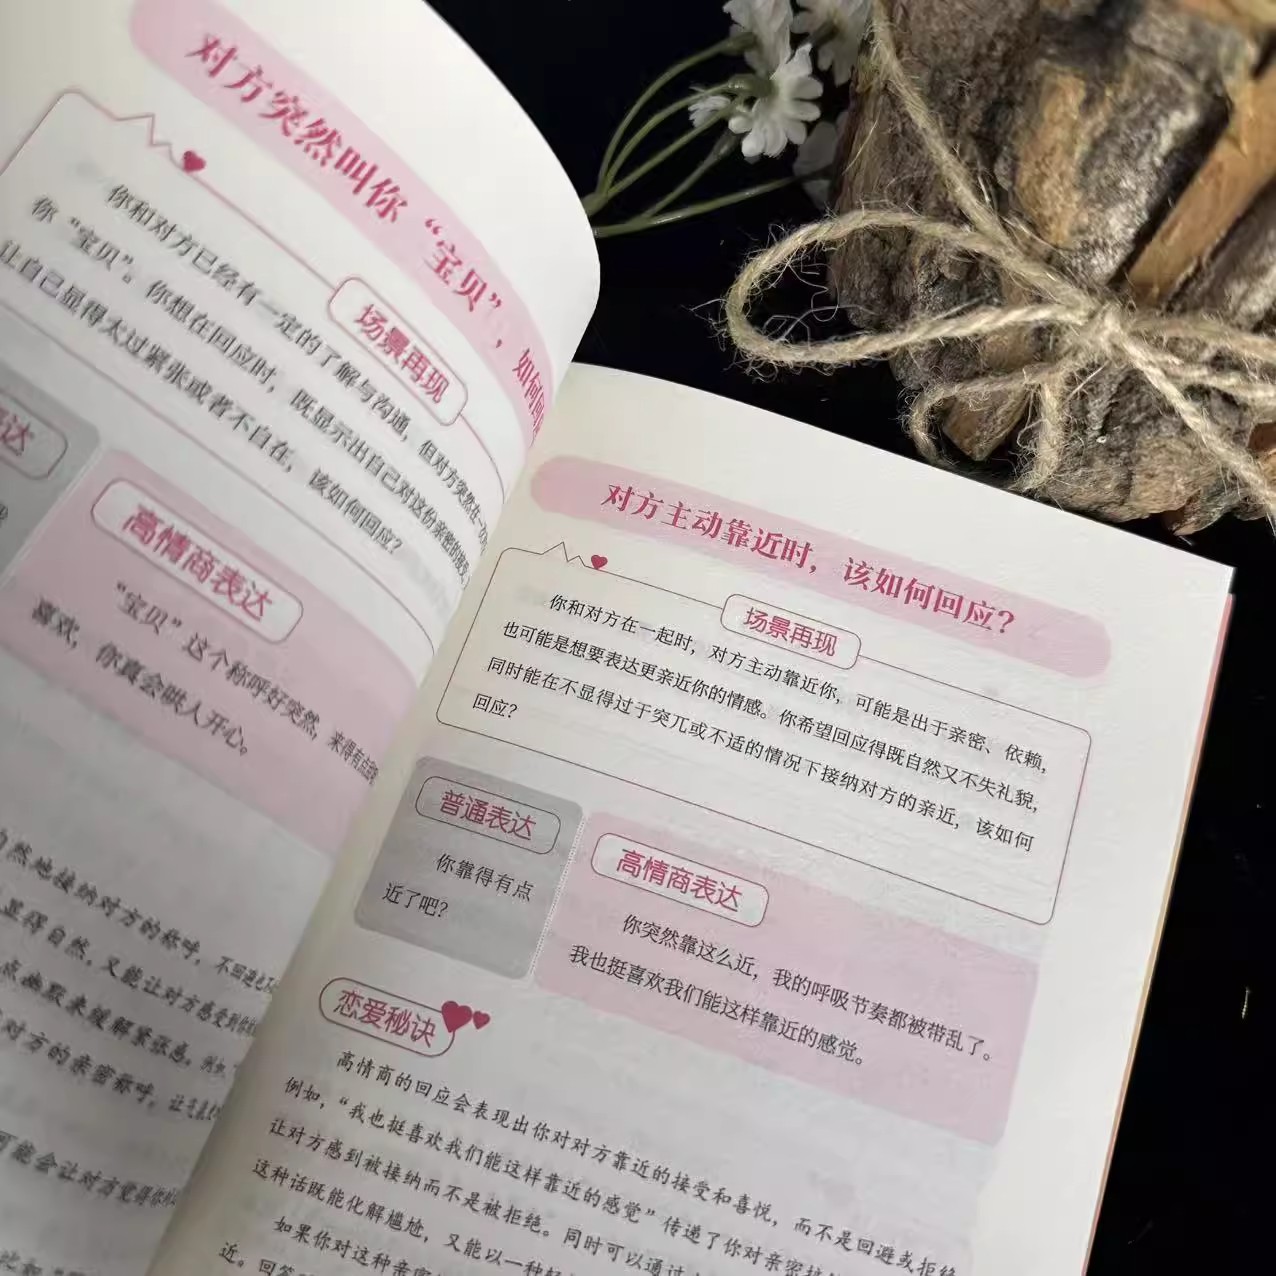 对方突然叫你“宝贝”，如何
场景再现
你和对方已经有一定的了解与沟通，但对方突然在一次
你“宝贝”。你想在回应时，既显示出自己对这份亲密的接受
让自己显得太过紧张或者不自在，该如何回应？
表达
高情商表达
“宝贝”这个称呼好突然，来得有点
喜欢，你真会哄人开心。
自然地接纳对方的称呼，不回避
显得自然，又能让对方感受到你
点幽默来缓解紧张感。例如，
对方的亲密称呼，让
可能会让对方觉得你
对方主动靠近时，该如何回应？
场景再现
你和对方在一起时，对方主动靠近你，可能是出于亲密、依赖，
也可能是想要表达更亲近你的情感。你希望回应得既自然又不失礼貌，
同时能在不显得过于突兀或不适的情况下接纳对方的亲近，该如何
回应？
普通表达
你靠得有点
近了吧？
高情商表达
你突然靠这么近，我的呼吸节奏都被带乱了。
我也挺喜欢我们能这样靠近的感觉。
恋爱秘诀
高情商的回应会表现出你对对方靠近的接受和喜悦，而不是回避或拒绝
例如，“我也挺喜欢我们能这样靠近的感觉”传递了你对亲密
让对方感到被接纳而不是被拒绝。同时可以通过
这种话既能化解尴尬，又能以一种轻
如果你对这种亲密
近。回答